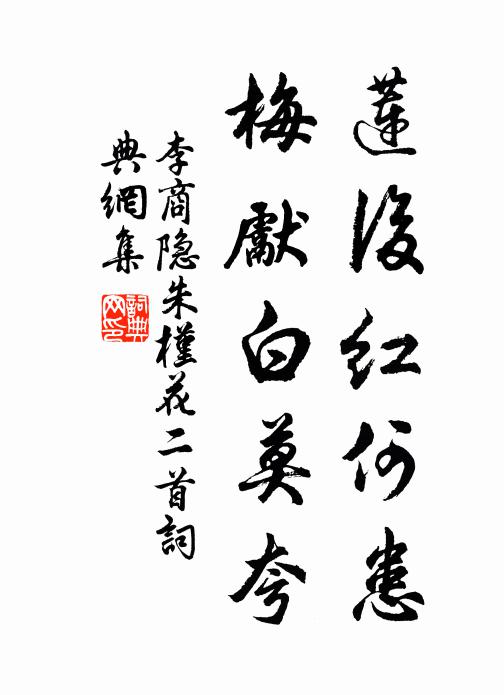 蓮後紅何患
梅獻白莫夸
李商隐朱槿花二首詞
典網集
詞典网印